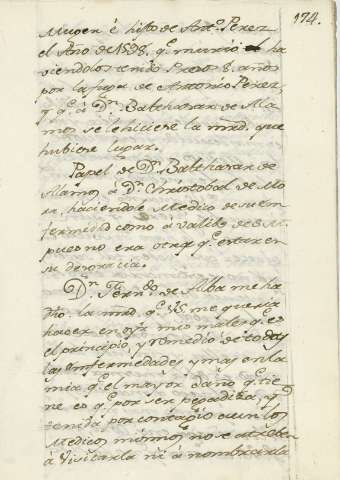 174.
Muger é hijos de Antº. Perez
el Año de 1598. qe. murió ha
viendolos tenido Presos 8. años
por la fuga de Antonio Perez,
y qe. á Dn. Balthasar de Ala
mos se le hiciese la mrd. que
hubiese lugar.
Papel de Dn. Balthasar de
Alamos á Dn. Christobal de Mo
ra, haciendole Medico de su en
fermedad como á valido de S. M.
pues no era otra qe. estar en
su desgracia.
Dn. Ferndo. de Alba me ha
dho. la mrd. qe. VS. me queria
hacer en oyr mis males qe. es
el principio, y remedio de todas
las enfermedades y mas en la
mia qe. el mayor daño qe. tie
ne es qe. por ser pegadiza, y
tenida por contagio aun los
Medicos mismos no se atreben
á visitarla ni á nombrarla